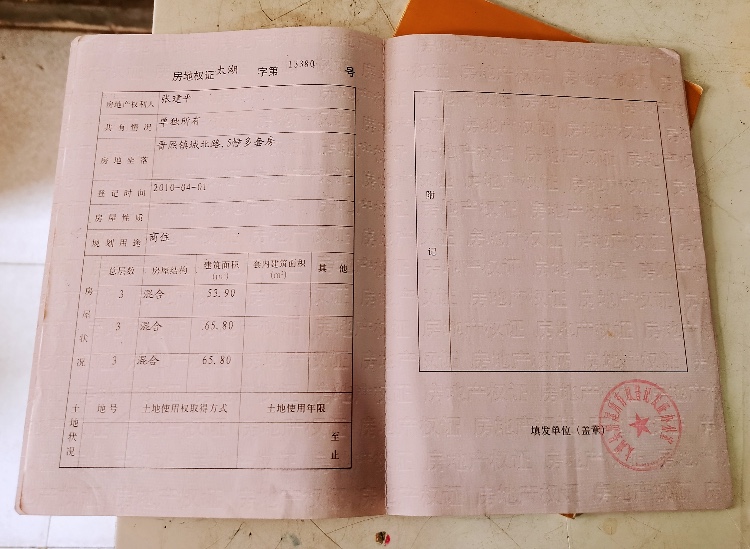 房地权证太湖 字第 15380 号
房地产权利人 张建平
共有情况 单独所有
房地坐落 晋熙镇城北路,5幢多套房
登记时间 2010-04-01
房屋性质
规划用途 商住
房屋状况
总层数 房屋结构 建筑面积(m²) 套内建筑面积(m²) 其他
3 混合 53.90
3 混合 65.80
3 混合 65.80
土地状况
地号 土地使用权取得方式 土地使用年限
至
止
附记
填发单位(盖章)